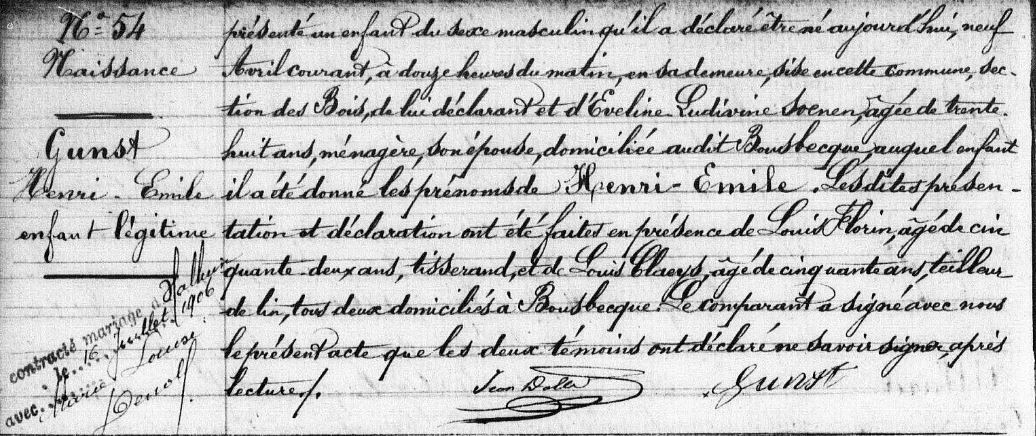 N° 54
Naissance
Gunst
Henri-Emile
enfant légitime
contracté mariage à Halluin
le 16 Juillet 1906
avec Marie Louise
présenté un enfant du sexe masculin qu'il a déclaré être né aujourd'hui, neuf
Avril courant, à douze heures du matin, en sa demeure, sise en cette commune, sec-
tion des Bois, de lui déclarant et d'Eveline Ludivine Soenen, âgée de trente-
huit ans, ménagère, son épouse, domiciliée audit Bousbecque, auquel enfant
il a été donné les prénoms de Henri-Emile. Lesdites présen-
tation et déclaration ont été faites en présence de Louis Florin, âgé de cin
quante-deux ans, tisserand, et de Louis Claeys, âgé de cinquante ans, teilleur
de lin, tous deux domiciliés à Bousbecque. Le comparant a signé avec nous
le présent acte que les deux témoins ont déclaré ne savoir signer, après
lecture /.
Jean Dalle
Gunst